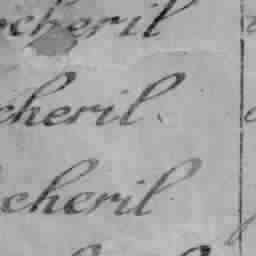 ocheril
cheril
cheril